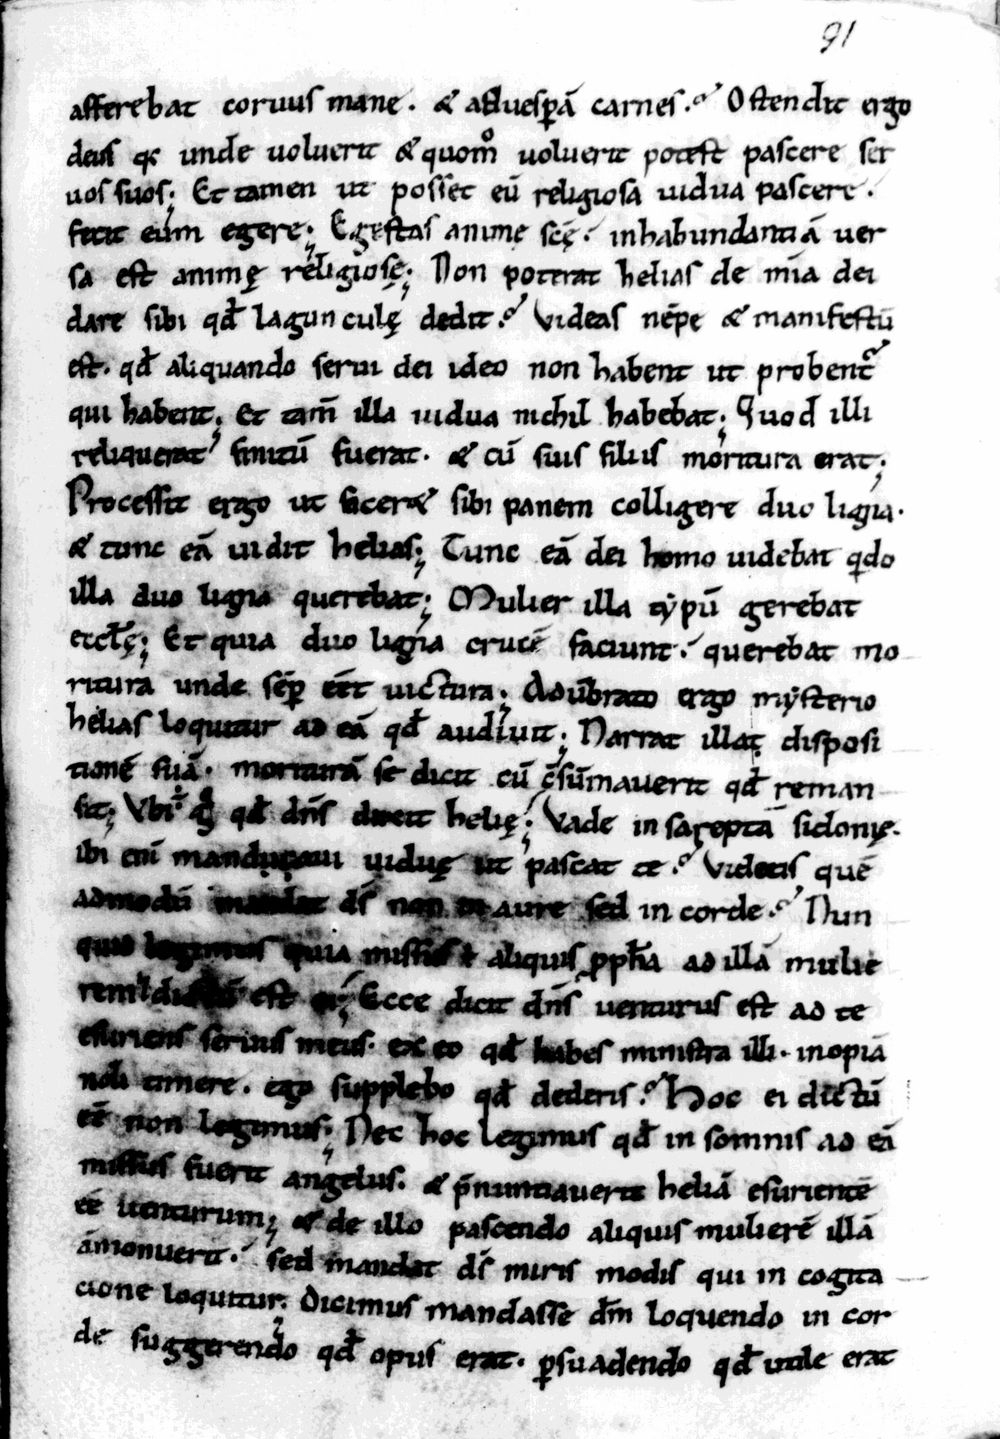 91
afferebat coruus mane. & aduesꝑā carnes. Ostendit ergo
deus qꝛ unde uoluerit & quomͦ uoluerit potest pascere ser
uos suos; Et tamen ut posset eū religiosa uidua pascere.
fecit eum egere; Egestas animę scę. inhabundantiā uer
sa est animę religiosę; Non poterat helias de mīa dei
dare sibi qđ lagunculę dedit. Videas nēpe & manifestū
est. qđ aliquando serui dei ideo non habent ut probent᷑
qui habent; Et tam̄ illa uidua nichil habebat; Quod illi
reliquerat finitū fuerat. & cū suis filiis moritura erat;
Processit ergo ut facer& sibi panem colligere duo ligna.
& tunc eā uidit helias; Tunc eā dei homo uidebat qđo
illa duo ligna querebat; Mulier illa tẏpū gerebat
ęccłę; Et quia duo ligna crucē faciunt. querebat mo
ritura unde sēꝑ eēt uictura; Adūbrato ergo mẏsterio
helias loquitur ad eā qđ audiuit; Narrat illa disposi
tionē suā. morturā se dicit cū c̄sūmauerit qđ reman
sit; Vbi ÷ g̊ qđ dn̄s dixit helię; Vade in sareptā sidonię.
ibi eni manducaui uiduę ut pascat te. Videtis quē
admodū mandat ds̄ non in aure sed in corde. Nun
quid legimus quia missus ÷ aliquis ꝓpħa ad illā mulie
rem & dictū est ei; Ecce dicit dn̄s uenturus est ad te
esuriens seruus meus. ex eo qđ habes ministra illi. inopiā
noli timere. ego supplebo qđ dederis. Hoc ei dictū
eē non legimus; Nec hoc legimus qđ in somnis ad eā
missus fuerit angelus. & p̄nuntiauerit heliā esurientē
eē uenturum; & de illo pascendo aliquis mulierē illā
āmonuerit. sed mandat ds̄ miris modis qui in cogita
cione loquitur. Dicimus mandasse dm̄ loquendo in cor
de suggerendo qđ opus erat. ꝑsuadendo qđ utile erat